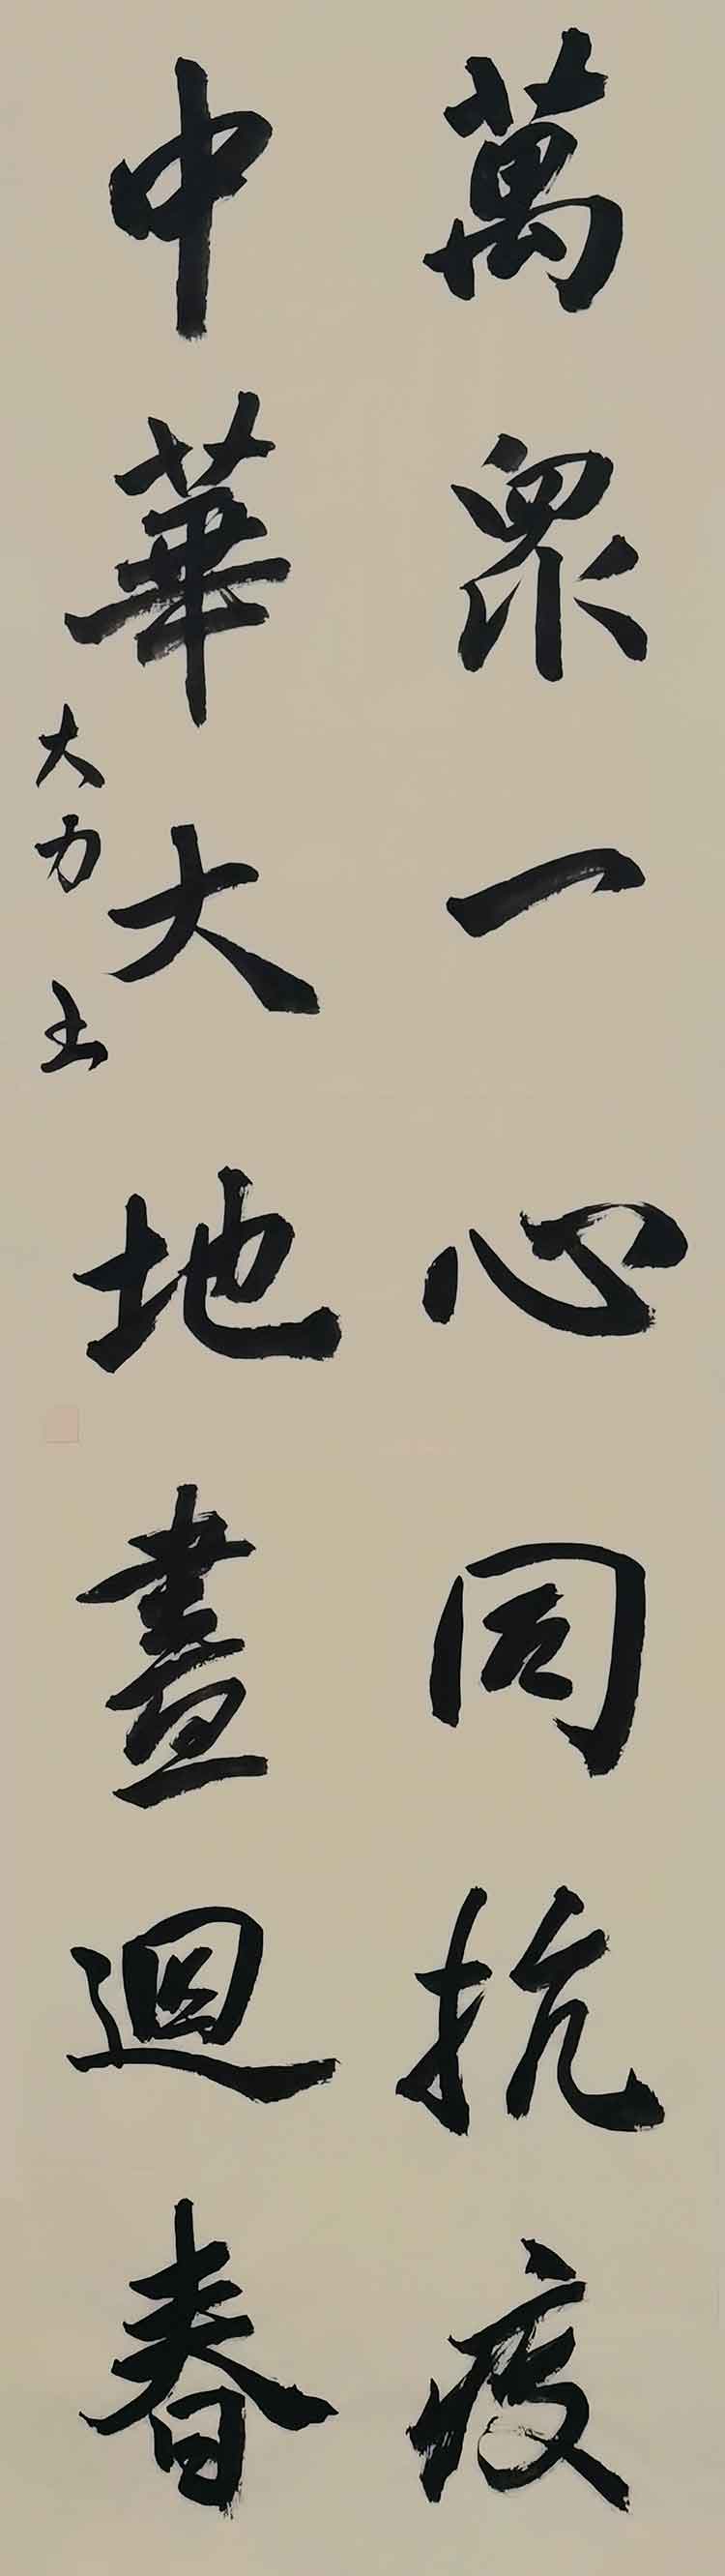 萬眾一心同抗疫
中華大地晝迴春
大力土